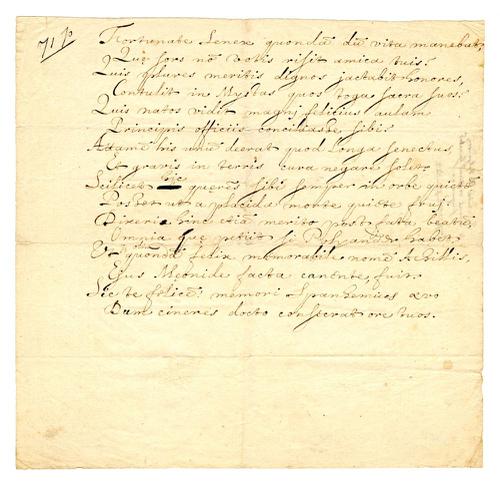 71 p
Fortunate Senex quondã dũ vita manebat,
Quę sors nõ votis risit amica tuis?
Quis plures meritis dignos jactabit honores,
Contulit in Mystas quos toga sacra suos?
Quis natos vidit magni felicius aulam
Principis officiis conciliasse sibi?
Attamẽ his unũ deerat quod Longa Senectus,
Et gravis in terris cura negare solet.
Scilicet hic querẽs sibi semper in orbe quietẽ
Posset ut a placida morte quiete frui.
Dixeris hinc etiã merito post fata beatũ,
Omnia que petiit si habet.
Ut quondã felix memorabile nomẽ Achillis,
Ejus Meonide facta canente fuit.
Sic te felicẽ memori Spanhemius ævo
Dum cineres docto consecrat ore tuos.